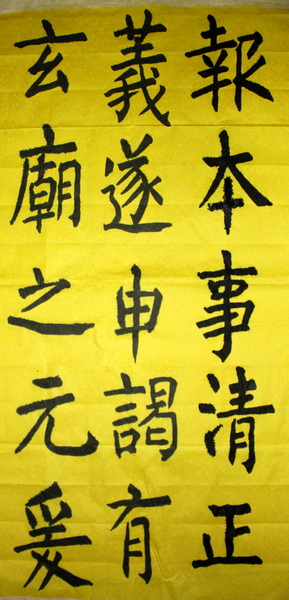 報本事清正
義遂申謁有
玄廟之元爰